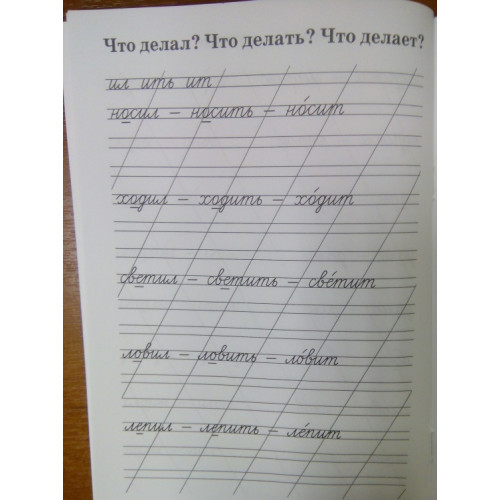 Что делал? Что делать? Что делает?
ил ить ит
носил – носить – но́сит
ходил – ходить – хо́дит
светил – светить – све́тит
ловил – ловить – ло́вит
лепил – лепить – ле́пит